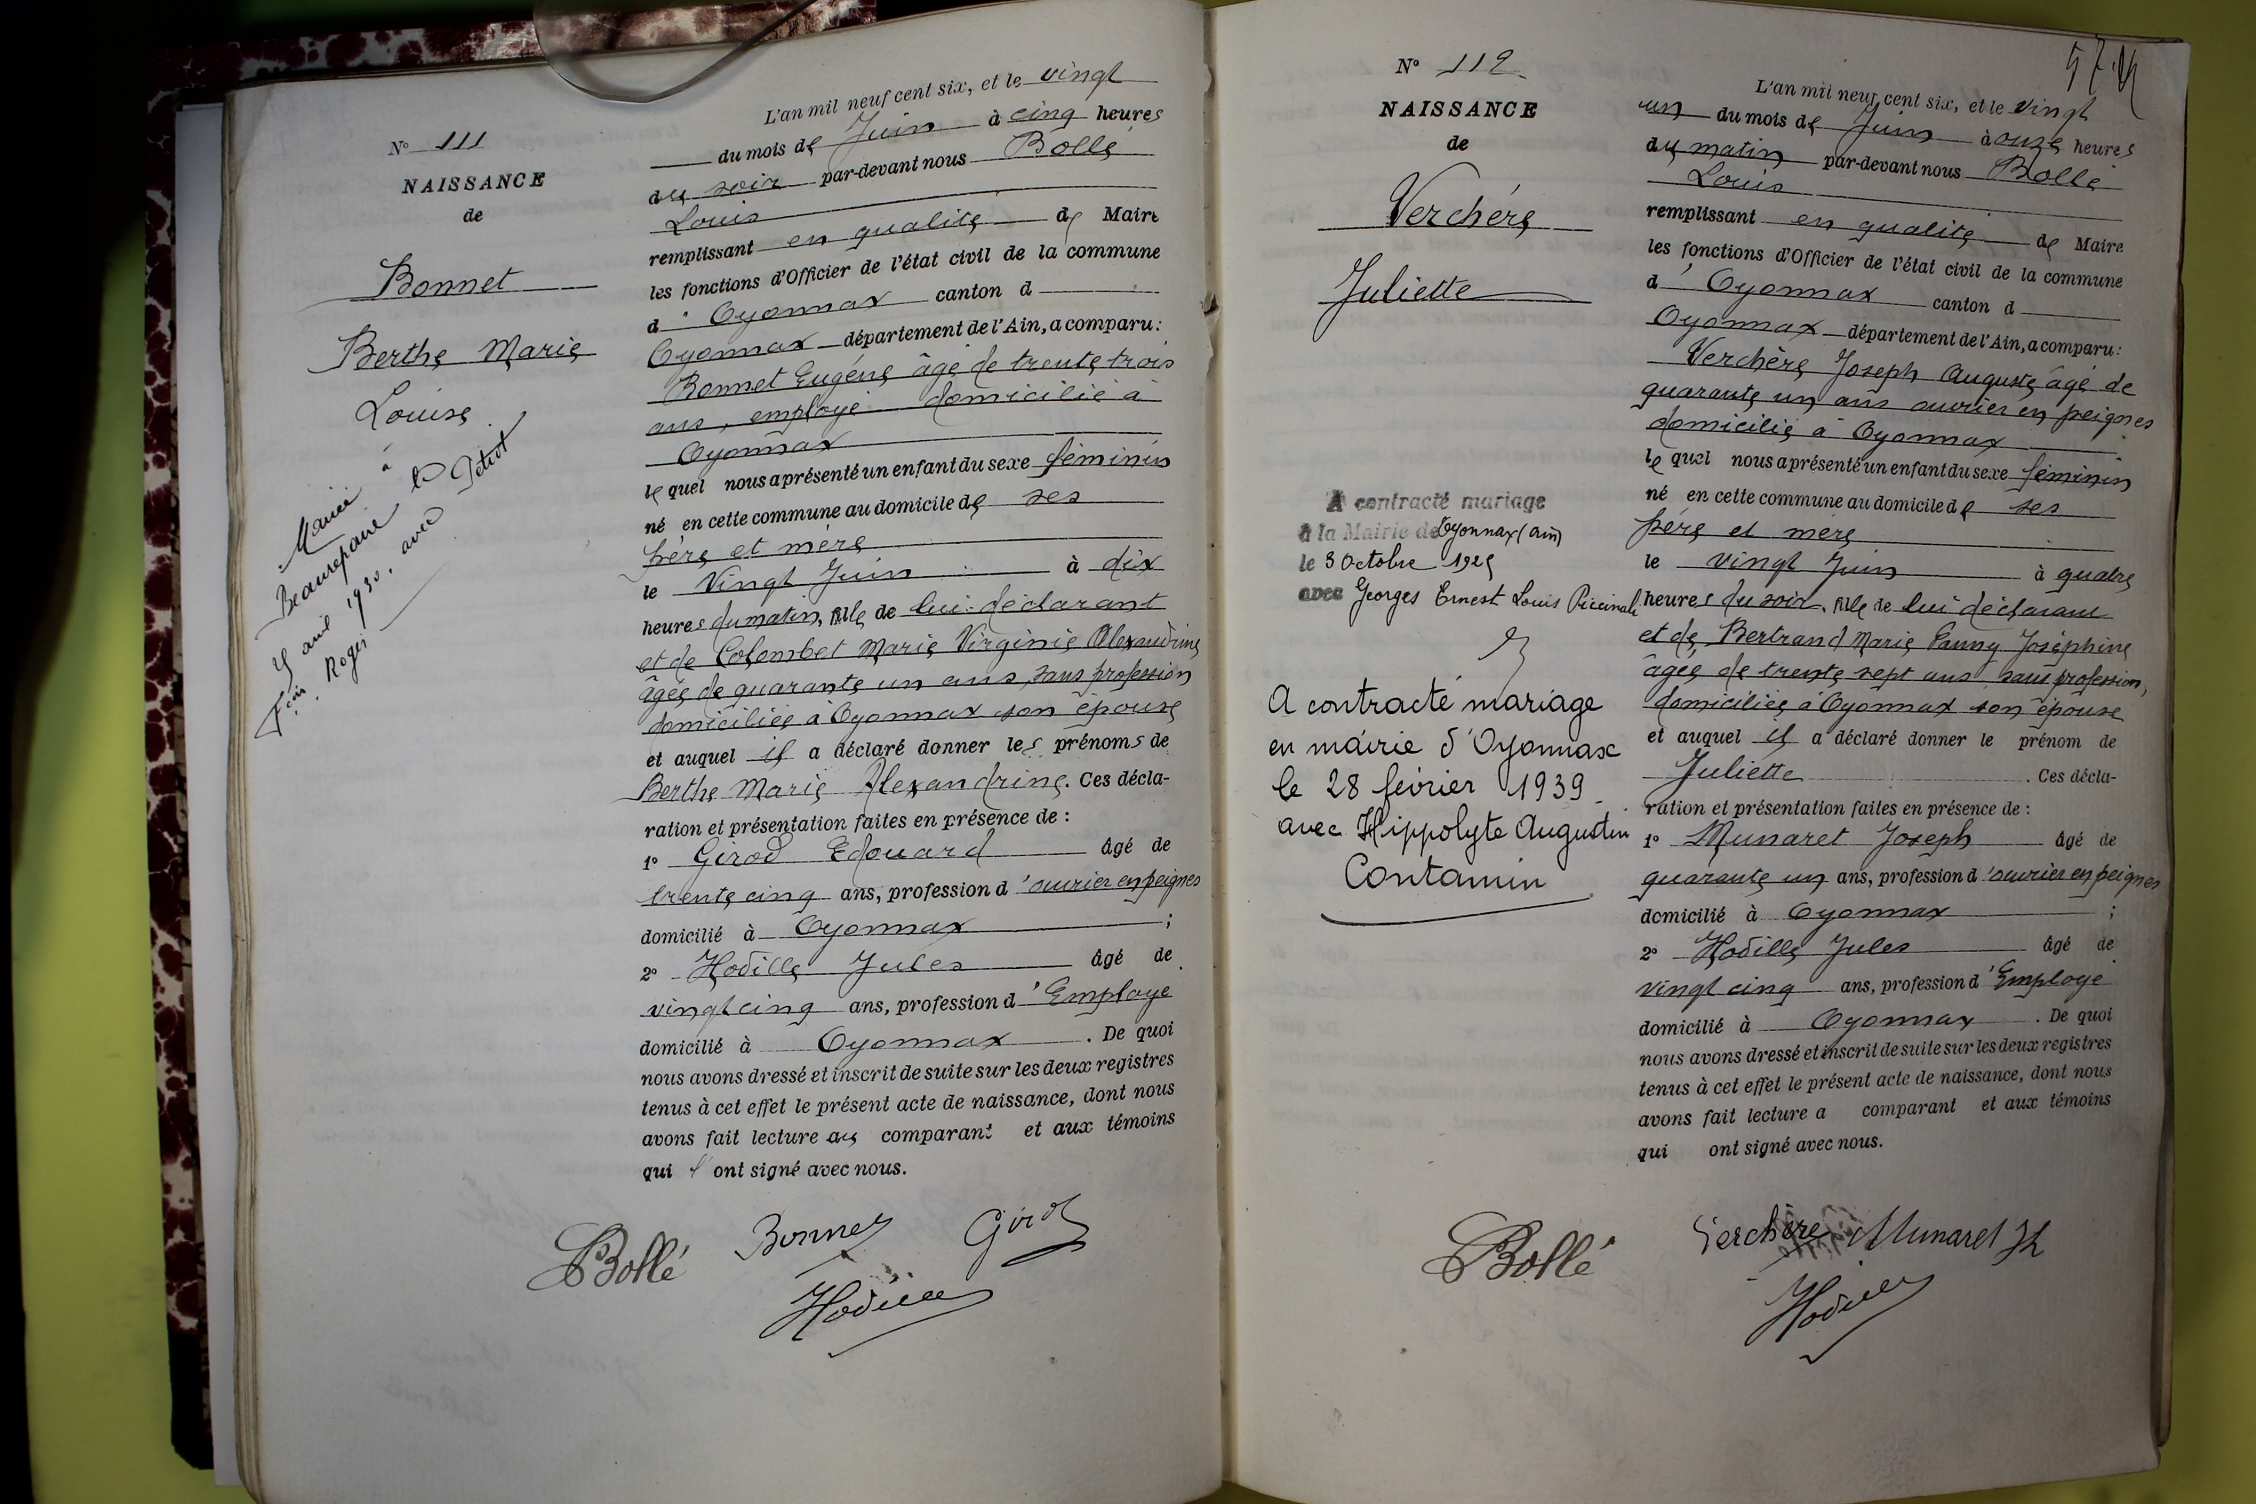 N° 111
NAISSANCE
de
Bonnet
Berthe Marie
Louise
Mariée à
Beaurepaire le
avril 1930. avec
Roger Petiot
L'an mil neuf cent six, et le vingt
du mois de Juin à cinq heures
du soir par-devant nous Bollé
Louis
remplissant en qualité de Maire
les fonctions d'Officier de l'état civil de la commune
d' Oyonnax canton d
Oyonnax département de l'Ain, a comparu:
Bonnet Eugène âgé de trente trois
ans, employé domicilié à
Oyonnax
le quel nous a présenté un enfant du sexe féminin
né en cette commune au domicile de ses
père et mère
le Vingt Juin à dix
heures du matin, fille de lui déclarant
et de Colombet Marie Virginie Alexandrine
âgée de quarante un ans, sans profession
domiciliée à Oyonnax son épouse
et auquel il a déclaré donner les prénoms de
Berthe Marie Alexandrine. Ces décla-
ration et présentation faites en présence de :
1° Girod Edouard âgé de
trente cinq ans, profession d'ouvrier en peignes
domicilié à Oyonnax ;
2° Hodille Jules âgé de
vingt cinq ans, profession d'Employé
domicilié à Oyonnax . De quoi
nous avons dressé et inscrit de suite sur les deux registres
tenus à cet effet le présent acte de naissance, dont nous
avons fait lecture au comparant et aux témoins
qui ont signé avec nous.
Bollé Bonnet Girod
Hodille
N° 112
NAISSANCE
de
Verchère
Juliette
A contracté mariage
à la Mairie de Oyonnax (Ain)
le 3 Octobre 1925
avec Georges Ernest Louis Piccinali
A contracté mariage
en mairie d'Oyonnax
le 28 février 1939
avec Hippolyte Augustin
Contamin
57
L'an mil neuf cent six, et le vingt
un du mois de Juin à onze heures
du matin par-devant nous Bollé
Louis
remplissant en qualité de Maire
les fonctions d'Officier de l'état civil de la commune
d' Oyonnax canton d
Oyonnax département de l'Ain, a comparu:
Verchère Joseph Auguste âgé de
quarante un ans ouvrier en peignes
domicilié à Oyonnax
le quel nous a présenté un enfant du sexe féminin
né en cette commune au domicile de ses
père et mère
le vingt Juin à quatre
heures du soir, fille de lui déclarant
et de Bertrand Marie Fanny Joséphine
âgée de trente sept ans sans profession,
domiciliée à Oyonnax son épouse
et auquel il a déclaré donner le prénom de
Juliette . Ces décla-
ration et présentation faites en présence de :
1° Munaret Joseph âgé de
quarante un ans, profession d'ouvrier en peignes
domicilié à Oyonnax ;
2° Hodille Jules âgé de
vingt cinq ans, profession d'Employé
domicilié à Oyonnax . De quoi
nous avons dressé et inscrit de suite sur les deux registres
tenus à cet effet le présent acte de naissance, dont nous
avons fait lecture a comparant et aux témoins
qui ont signé avec nous.
Bollé Verchère Munaret Jh
Hodille